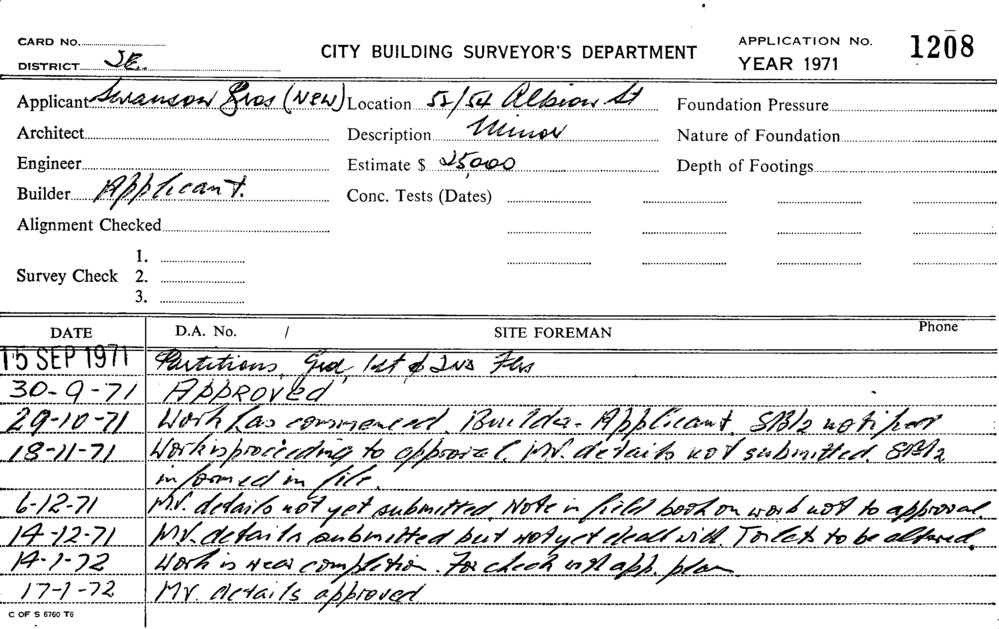 CARD No.
DISTRICT J.E.
CITY BUILDING SURVEYOR'S DEPARTMENT
APPLICATION No. 1208
YEAR 1971
Applicant Swanson Bros (New) Location 52/54 Albion St Foundation Pressure
Architect Description Minor Nature of Foundation
Engineer Estimate $ 25,000 Depth of Footings
Builder Applicant. Conc. Tests (Dates)
Alignment Checked
1.
Survey Check 2.
3.
DATE D.A. No. / SITE FOREMAN Phone
15 SEP 1971 Partitions, Grd, 1st & 2nd Flrs
30-9-71 APPROVED
29-10-71 Work has commenced. Builder - Applicant. notified
18-11-71 Work is proceeding to approval. M.V. details not submitted.
informed in file.
6-12-71 M.V. details not yet submitted. Note in field book on work not to approval.
14-12-71 M.V. details submitted but not yet dealt with. Toilets to be altered.
14-1-72 Work is near completion. For check with app. plan
17-1-72 M.V. details approved
C OF S 6760 T6